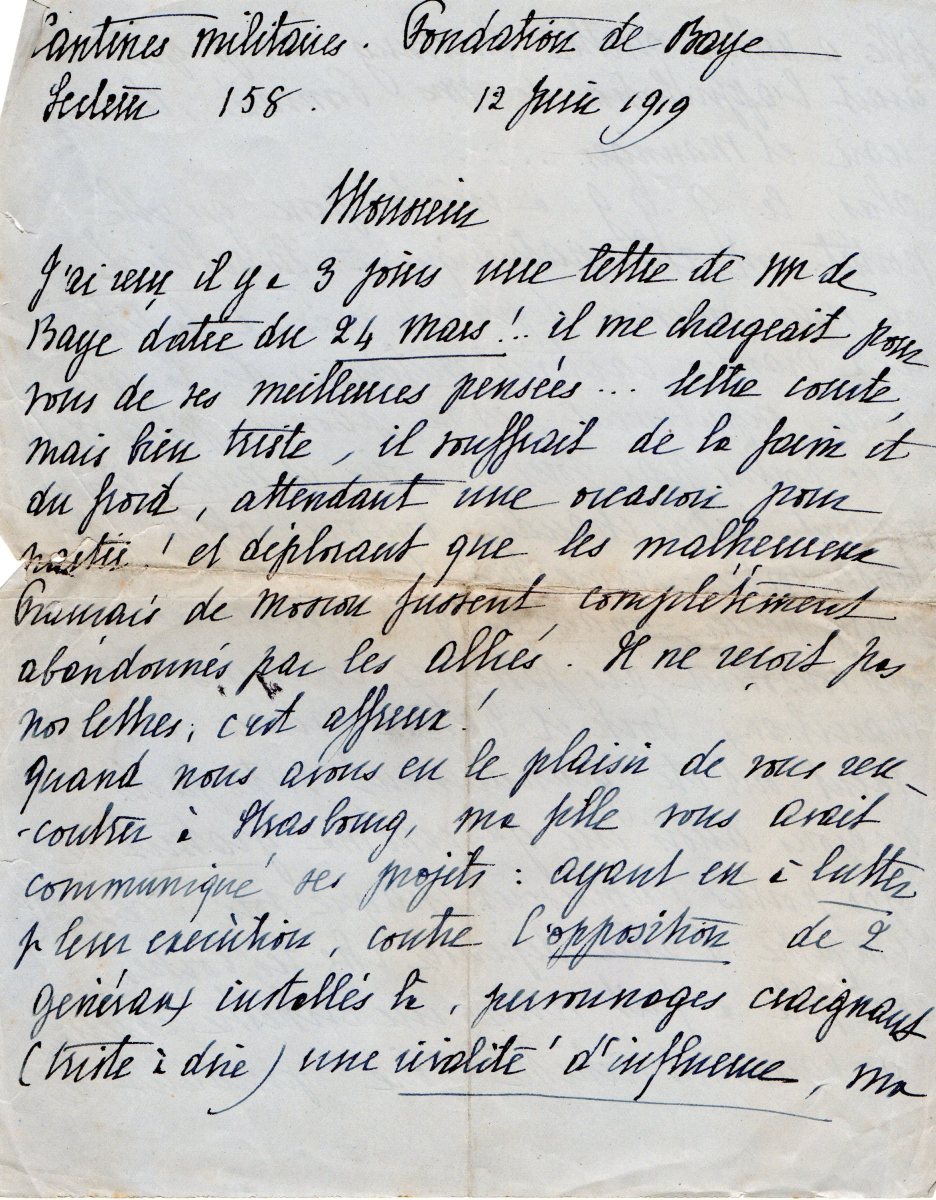 Cantines militaires. Fondation de Baye
Secteur 158. 12 Juin 1919
Monsieur
J'ai reçu il y a 3 jours une lettre de Mr de
Baye datée du 24 mars!.. il me chargeait pour
vous de ses meilleures pensées... lettre courte,
mais bien triste, il souffrait de la faim et
du froid, attendant une occasion pour
partir! et déplorant que les malheureux
Français de Moscou fussent complètement
abandonnés par les alliés. Il ne reçoit pas
nos lettres, c'est affreux!
Quand nous avons eu le plaisir de vous ren-
-contrer à Strasbourg, ma fille vous avait
communiqué ses projets : ayant eu à lutter
pr leur exécution, contre l'opposition de 2
généraux installés là, personnages craignant
(triste à dire) une rivalité d'influence, ma